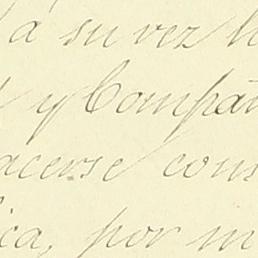 a su vez l
y Compañ
acerse cons
ica, por m